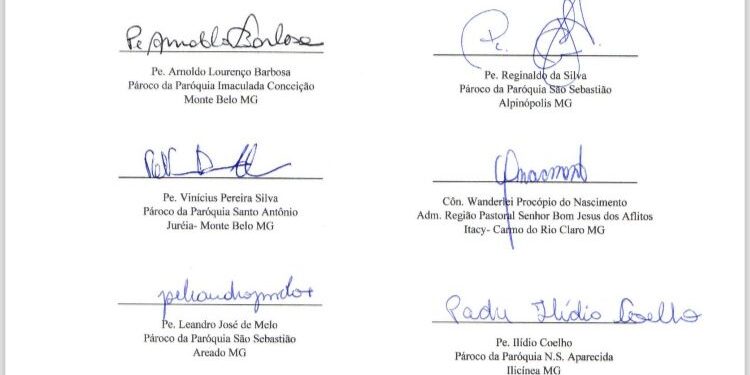 Pe Arnoldo Barbosa
Pe. Arnoldo Lourenço Barbosa
Pároco da Paróquia Imaculada Conceição
Monte Belo MG
Pe.
Pe. Reginaldo da Silva
Pároco da Paróquia São Sebastião
Alpinópolis MG
Pe. Vinícius Pereira Silva
Pároco da Paróquia Santo Antônio
Juréia- Monte Belo MG
Côn. Wanderlei Procópio do Nascimento
Adm. Região Pastoral Senhor Bom Jesus dos Aflitos
Itacy- Carmo do Rio Claro MG
Pe. Leandro José de Melo
Pároco da Paróquia São Sebastião
Areado MG
Padre Ilídio Coelho
Pe. Ilídio Coelho
Pároco da Paróquia N.S. Aparecida
Ilicínea MG